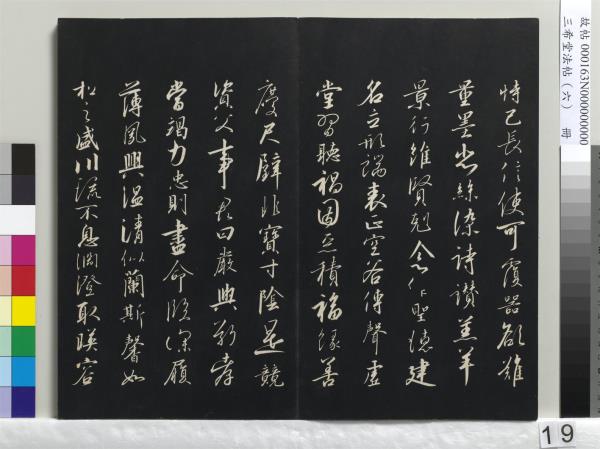 故帖 000163N000000000
三希堂法帖（六） 冊
恃己長信使可覆器欲難
量墨悲絲染詩讚羔羊
景行維賢剋念作聖德建
名立形端表正空谷傳聲虛
堂習聽禍因惡積福緣善
慶尺璧非寶寸陰是競
資父事君曰嚴與敬孝
當竭力忠則盡命臨深履
薄夙興溫清似蘭斯馨如
松之盛川流不息淵澄取暎容
19